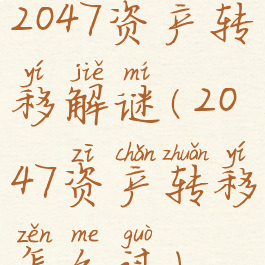 2047资产转
yí jiě mí
移解谜(20
zī chǎn zhuǎn yí
47资产转移
zěn me guò
怎么过)